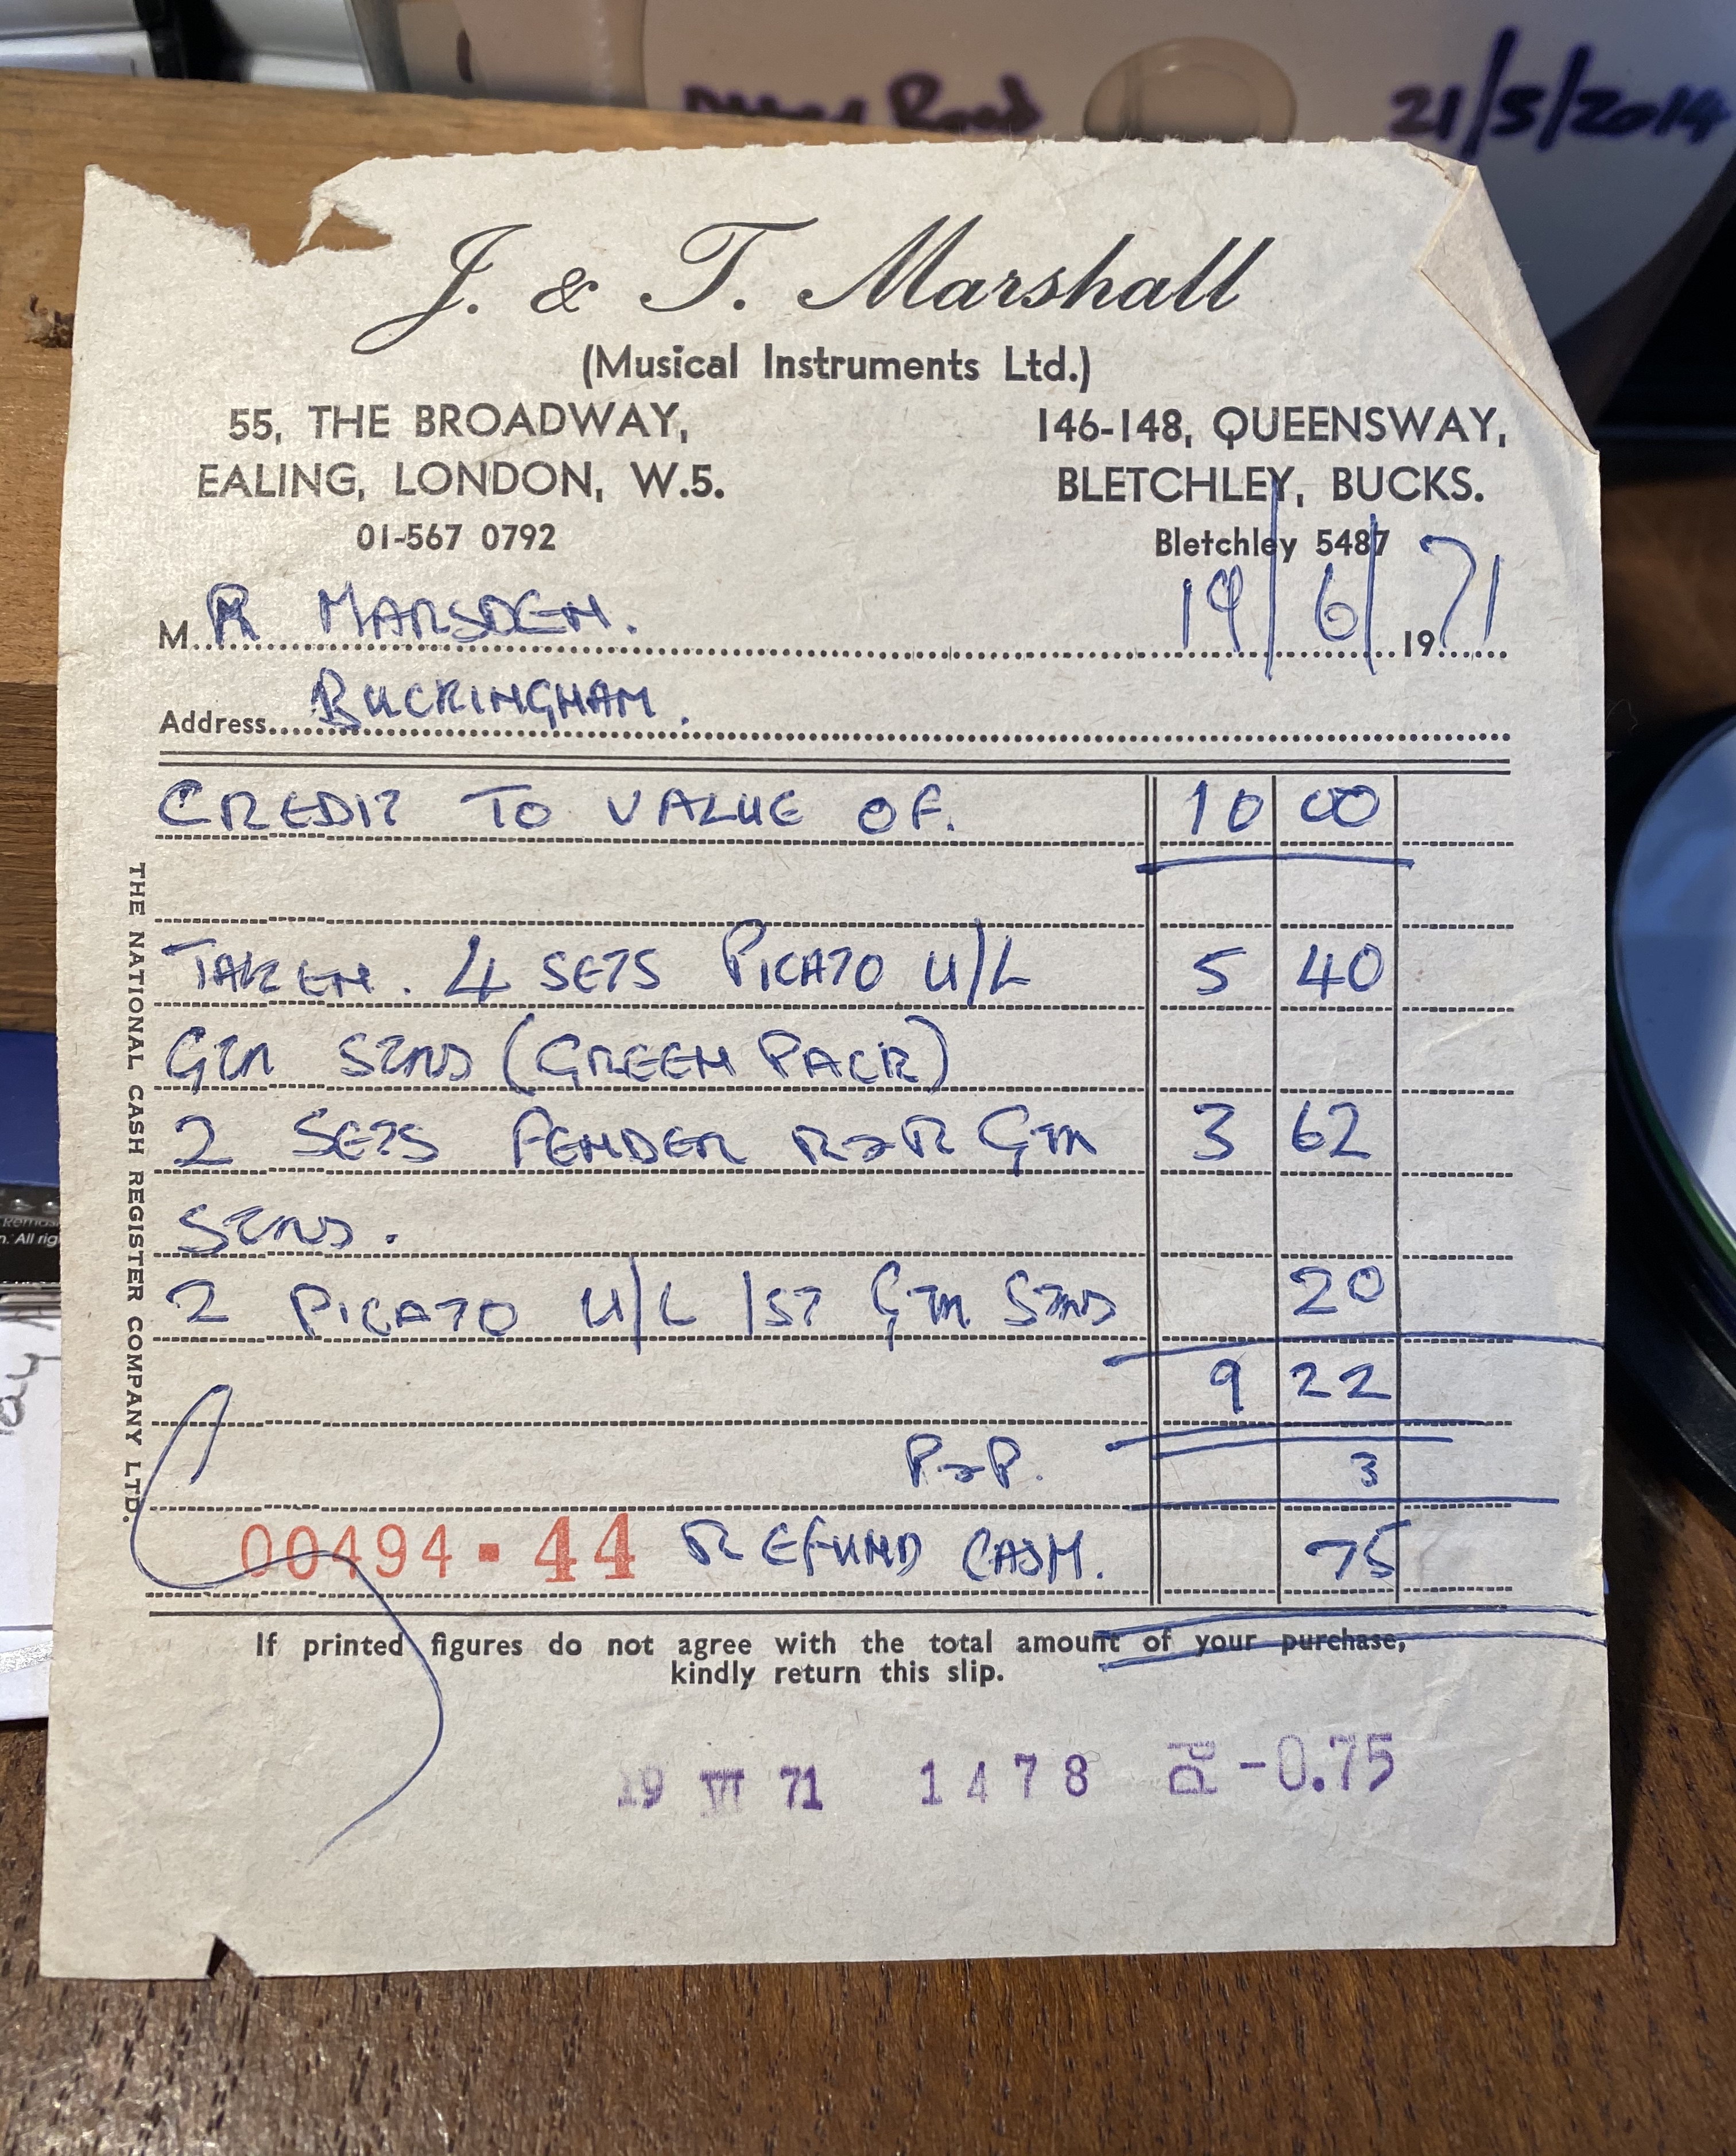 Road 21/5/2014
J. & T. Marshall
(Musical Instruments Ltd.)
55, THE BROADWAY,
EALING, LONDON, W.5.
01-567 0792
146-148, QUEENSWAY,
BLETCHLEY, BUCKS.
Bletchley 5487
M. R MARSDEN. 19/6/1971
Address BUCKINGHAM.
CREDIT TO VALUE OF. 10 00
TAKEN. 4 SETS PICATO U/L 5 40
GTR STNS (GREEN PACK)
2 SETS FENDER R&R GTR 3 62
STNS.
2 PICATO U/L 1ST GTR STNS 20
9 22
P&P. 3
00494·44 REFUND CASH. 75
If printed figures do not agree with the total amount of your purchase,
kindly return this slip.
19 VI 71 1478 Pd -0.75
THE NATIONAL CASH REGISTER COMPANY LTD.
n. All rig